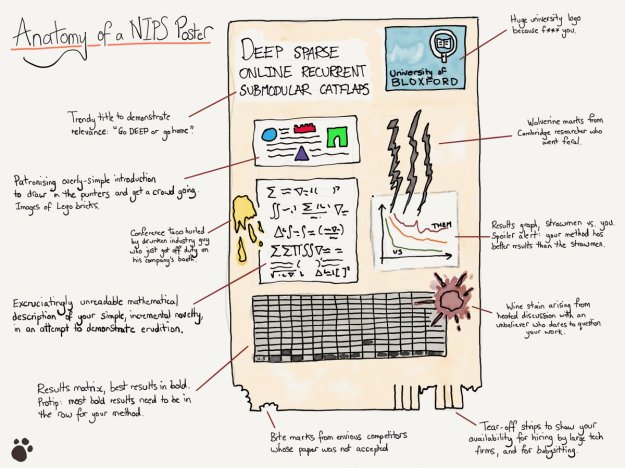 Anatomy of a NIPS Poster
DEEP SPARSE
ONLINE RECURRENT
SUBMODULAR CATFLAPS
University of
BLOXFORD
Huge university logo
because f*** you.
Trendy title to demonstrate
relevance: "Go DEEP or go home."
Wolverine marks from
Cambridge researcher who
went feral.
Patronising overly-simple introduction
to draw in the punters and get a crowd going.
Images of Lego bricks.
Conference taco hurled
by drunken industry guy
who just got off duty on
his company's booth.
THEM
US
Results graph, strawmen vs. you.
Spoiler alert: your method has
better results than the strawmen.
Excruciatingly unreadable mathematical
description of your simple, incremental novelty,
in an attempt to demonstrate erudition.
Wine stain arising from
heated discussion with an
unbeliever who dares to question
your work.
Results matrix, best results in bold.
Protip: most bold results need to be in
the row for your method.
Bite marks from envious competitors
whose paper was not accepted
Tear-off strips to show your
availability for hiring by large tech
firms, and for babysitting.